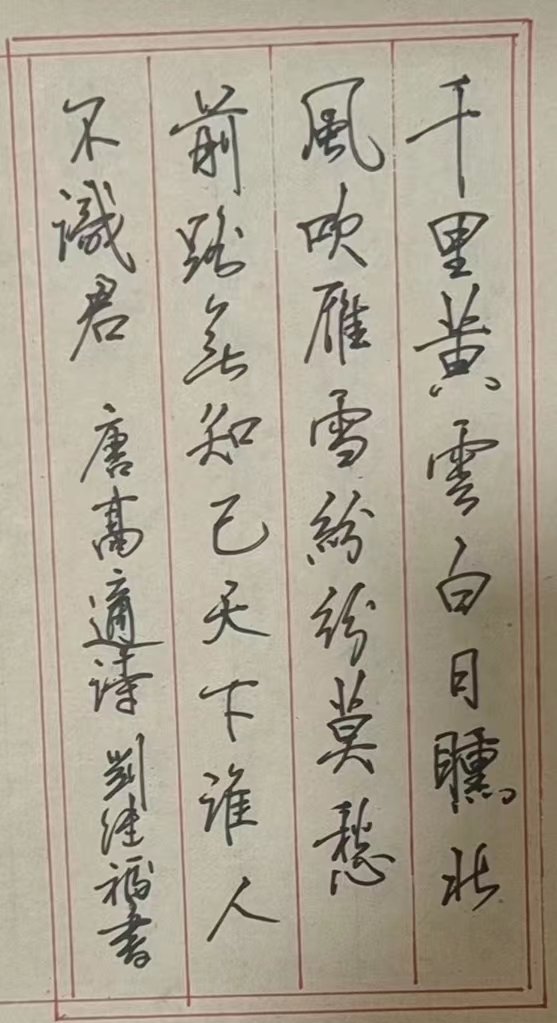 千里黄雲白日曛北
風吹雁雪紛紛莫愁
前路無知己天下誰人
不識君 唐高適诗 劉健福書